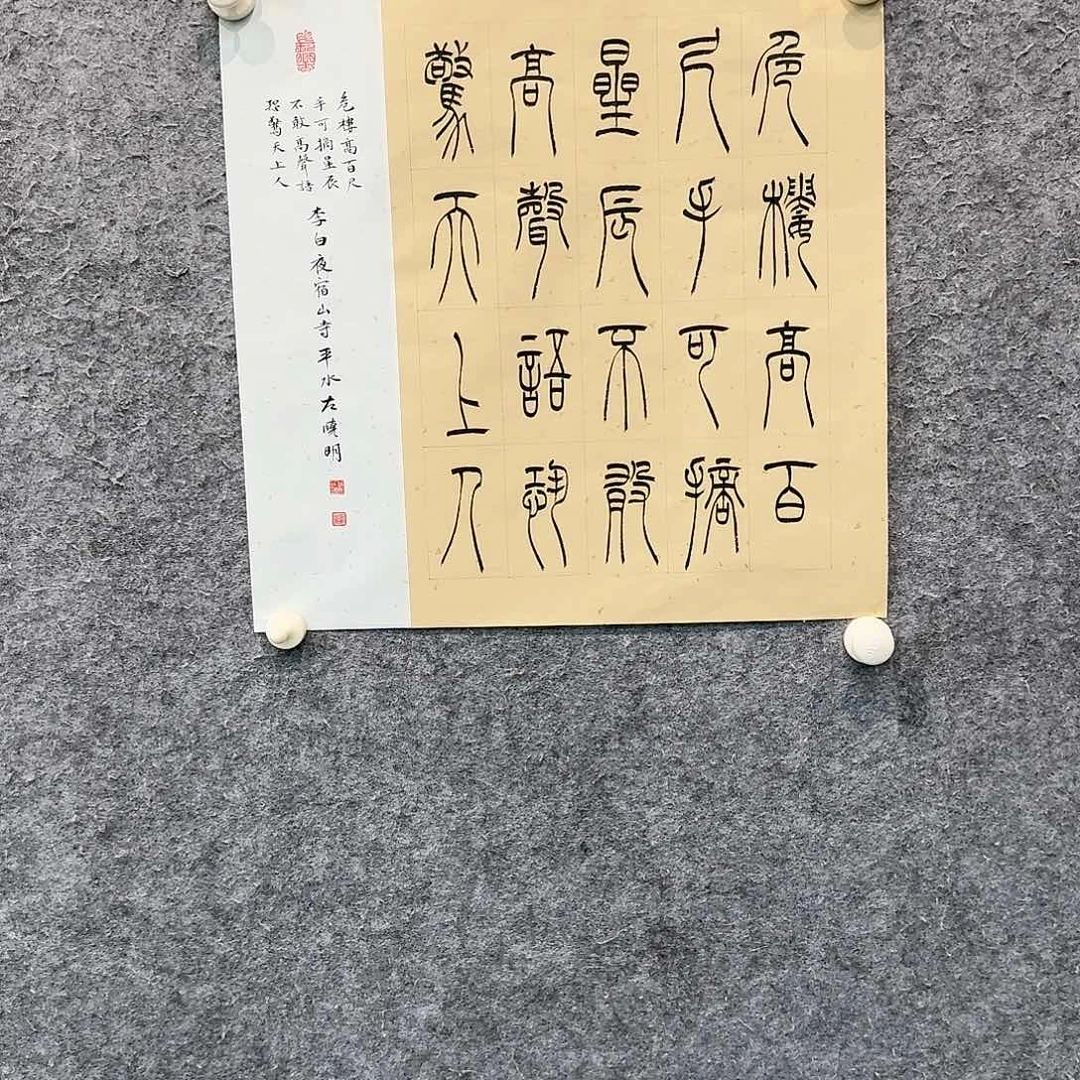 危樓高百
尺手可摘
星辰不敢
高聲語恐
驚天上人
危樓高百尺
手可摘星辰
不敢高聲語
恐驚天上人
李白夜宿山寺平水左曉明